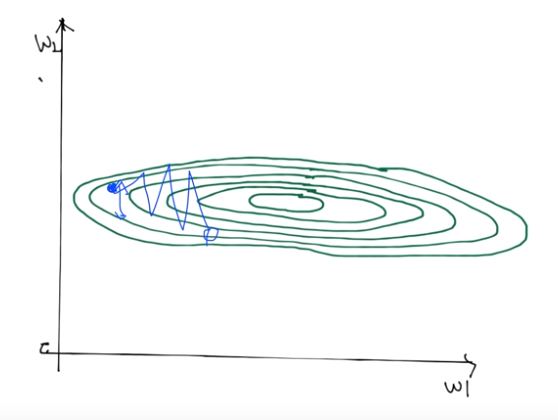 W2
W1